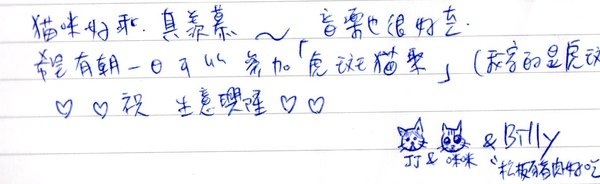 猫咪好乖. 真羨慕～ 音樂也很好聽.
希望有朝一日可以參加「虎斑猫聚」(我家的是虎斑
♡ ♡ 祝 生意興隆 ♡ ♡
& Billy
JJ & 咪咪
"松板豬肉好吃